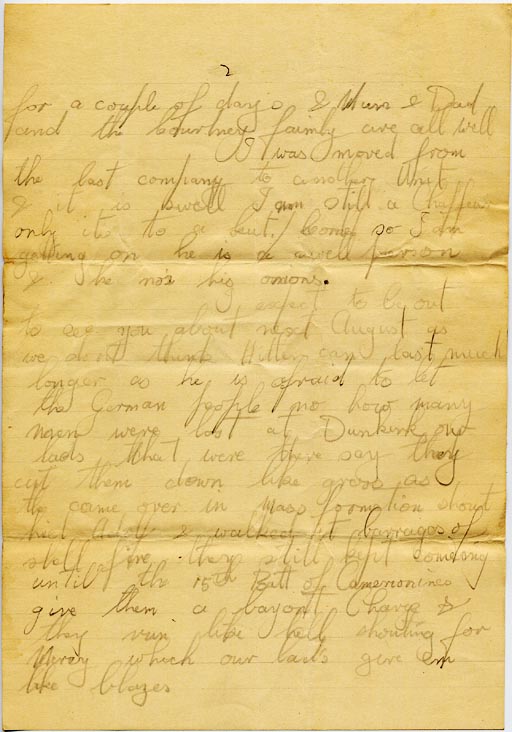 2
for a couple of days & Mum & Dad
and the Courtney faimly are all well
I was moved from
the last company to another Unit
& it is swell I am still a Chaffear
only its to a Leut. so I am
getting on he is a swell person
& he nos his onions.
expect to be out
to see you about next August as
we dont think Hitler can last much
longer as he is afraid to let
the German people no how many
men were lost at Dunkirk our
lads that were there say they
cut them down like grass as
the came over in Mass formation shout
hiel Adolf & walked it barrages of
shell fire they still kept comeing
until the 15th Batt of Camerionines
give them a bayont Charge &
they run like hell shouting for
Mercy which our lads give em
like blazes